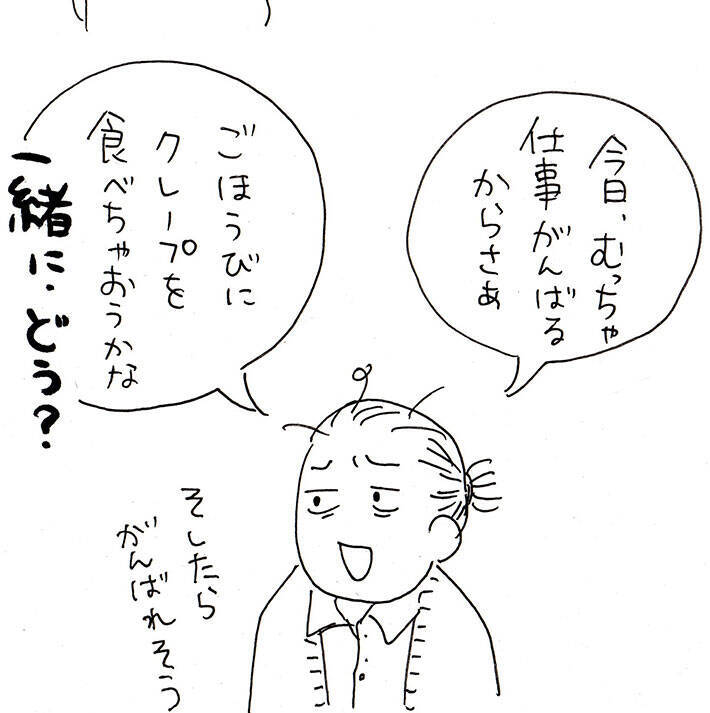 今日、むっちゃ
仕事がんばる
からさぁ
ごほうびに
クレープを
食べちゃおうかな
一緒に、どう？
そしたら
がんばれそう